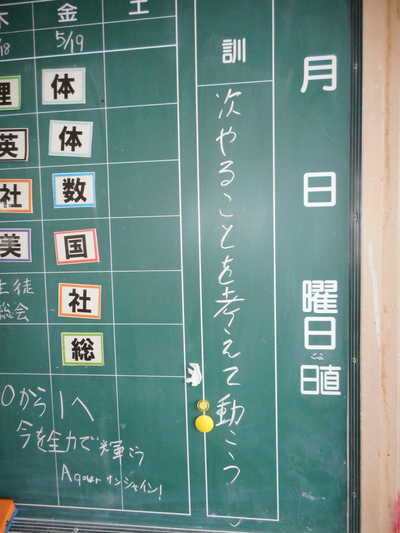 月 日 曜日
日直
訓
次やることを考えて動こう
土
金
5/19
体
体
数
国
社
総
木
18
理
英
社
美
生徒
総会
0から1へ
今を全力で輝こう
Aqoursサンシャイン!